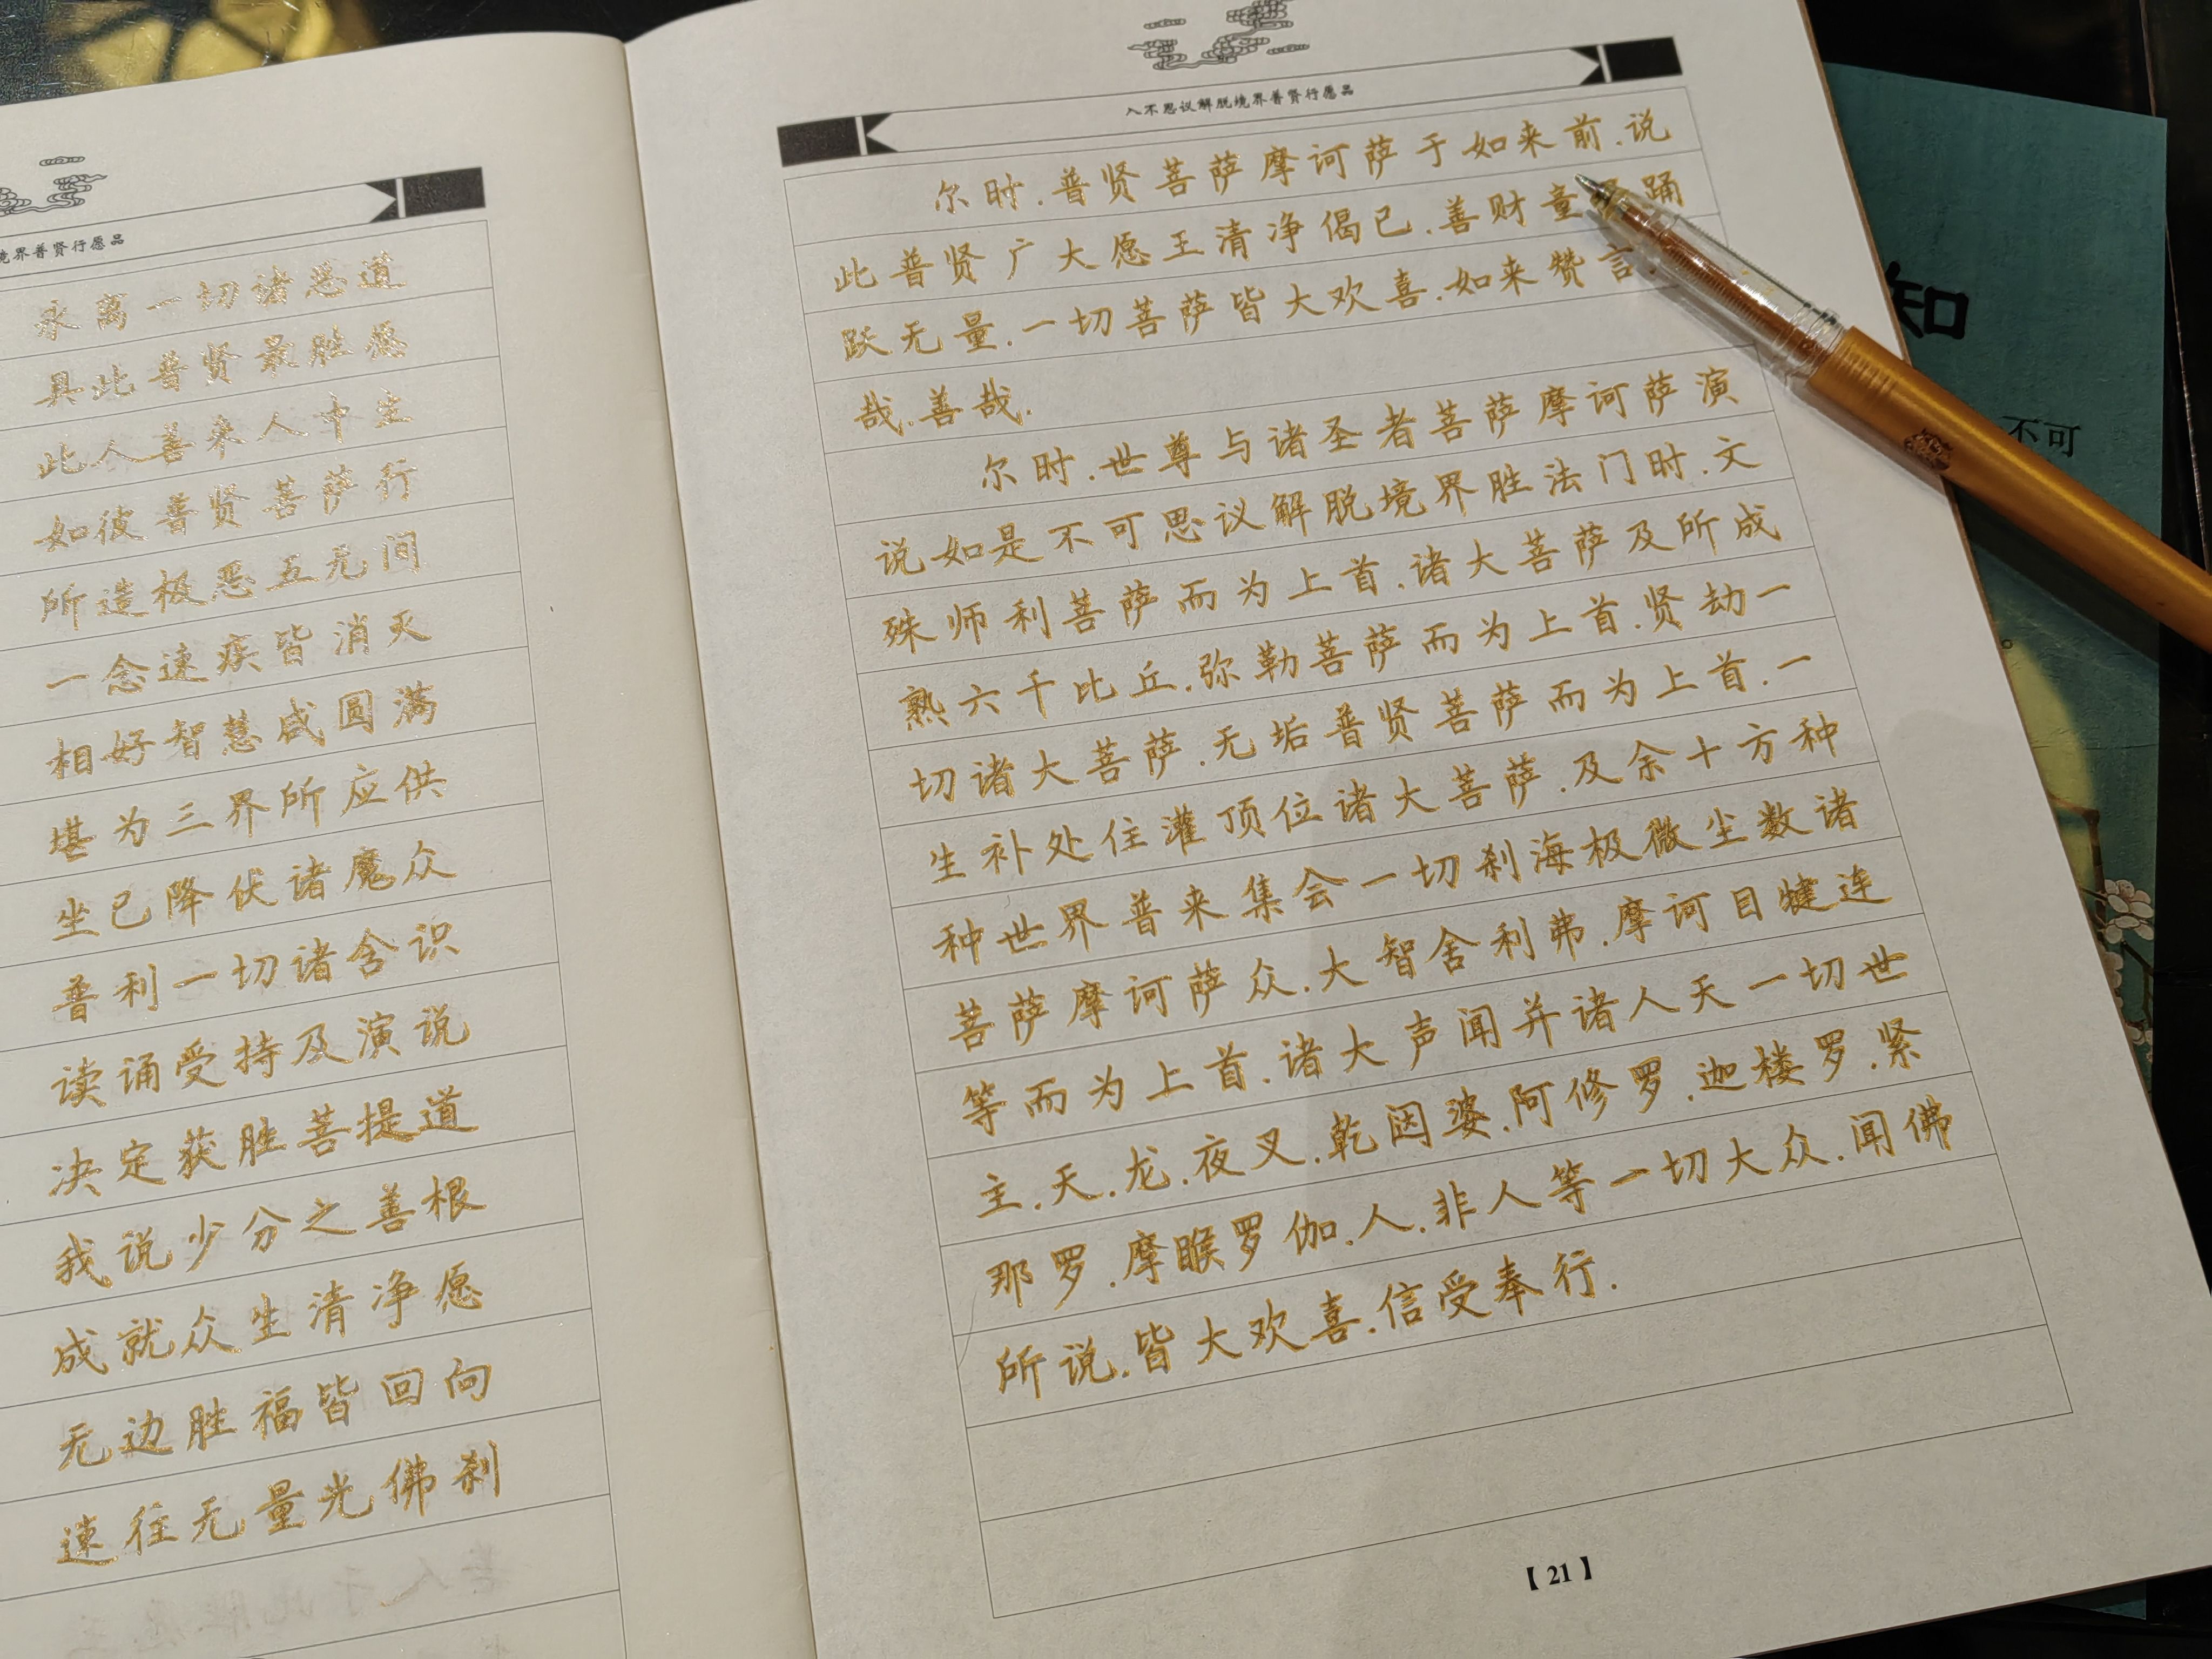 境界普贤行愿品
永离一切诸恶道
具此普贤最胜愿
此人善来人中生
如彼普贤菩萨行
所造极恶五无间
一念速疾皆消灭
相好智慧咸圆满
堪为三界所应供
坐已降伏诸魔众
普利一切诸含识
读诵受持及演说
决定获胜菩提道
我说少分之善根
成就众生清净愿
无边胜福皆回向
速往无量光佛刹
入不思议解脱境界普贤行愿品
尔时.普贤菩萨摩诃萨于如来前.说
此普贤广大愿王清净偈已.善财童 踊
跃无量.一切菩萨皆大欢喜.如来赞言.
哉.善哉.
尔时.世尊与诸圣者菩萨摩诃萨演
说如是不可思议解脱境界胜法门时.文
殊师利菩萨而为上首.诸大菩萨及所成
熟六千比丘.弥勒菩萨而为上首.贤劫一
切诸大菩萨.无垢普贤菩萨而为上首.一
生补处住灌顶位诸大菩萨.及余十方种
种世界普来集会一切刹海极微尘数诸
菩萨摩诃萨众.大智舍利弗.摩诃目犍连
等而为上首.诸大声闻并诸人天一切世
主.天.龙.夜叉.乾闼婆.阿修罗.迦楼罗.紧
那罗.摩睺罗伽.人.非人等一切大众.闻佛
所说.皆大欢喜.信受奉行.
【21】
知
不可